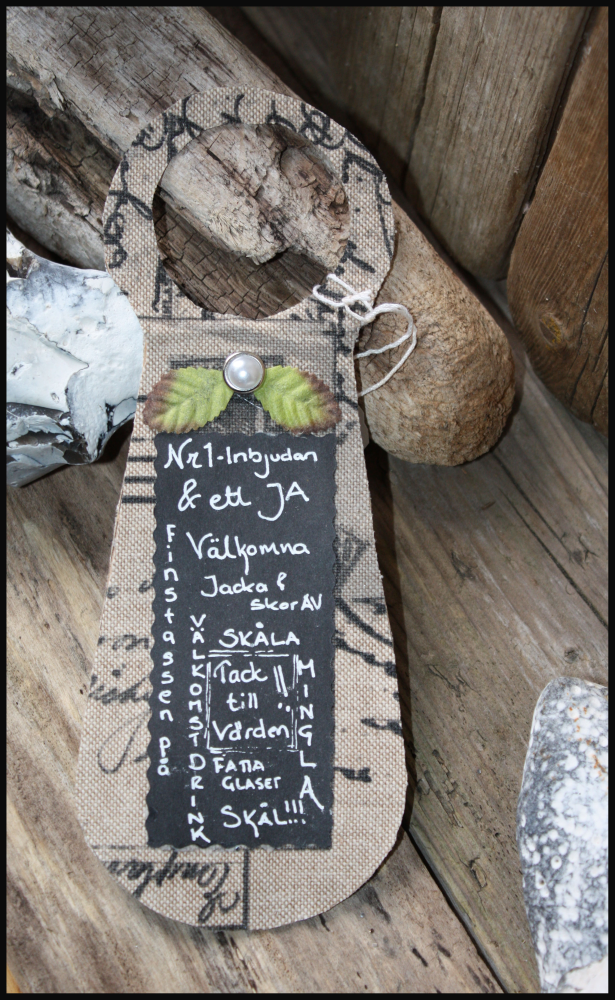 Nr1-Inbjudan
& ett JA
Finstassen på
Välkomna
Jacka &
skor ÅV
VÄLKOMSTDRINK
SKÅLA
Tack
till
Värden
!!
MINGLA
FATTA
GLASET
SKÅL!!!